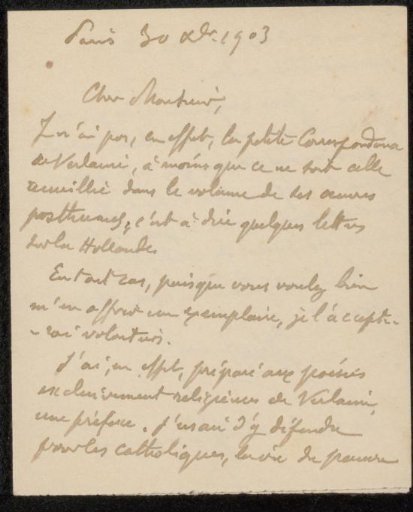 Paris 30 Xbr. 1903
Cher Monsieur,
Je n'ai pas, en effet, la petite Correspondance
de Verlaine, à moins que ce ne soit celle
recueillie dans le volume de ses œuvres
posthumes, c'est à dire quelques lettres
sur la Hollande.
En tout cas, puisque vous voulez bien
m'en offrir un exemplaire, je l'accepte-
rai volontiers.
J'ai, en effet, préparé aux poésies
exclusivement religieuses de Verlaine,
une préface. J'essaie d'y défendre
pour les catholiques, la vie du pauvre